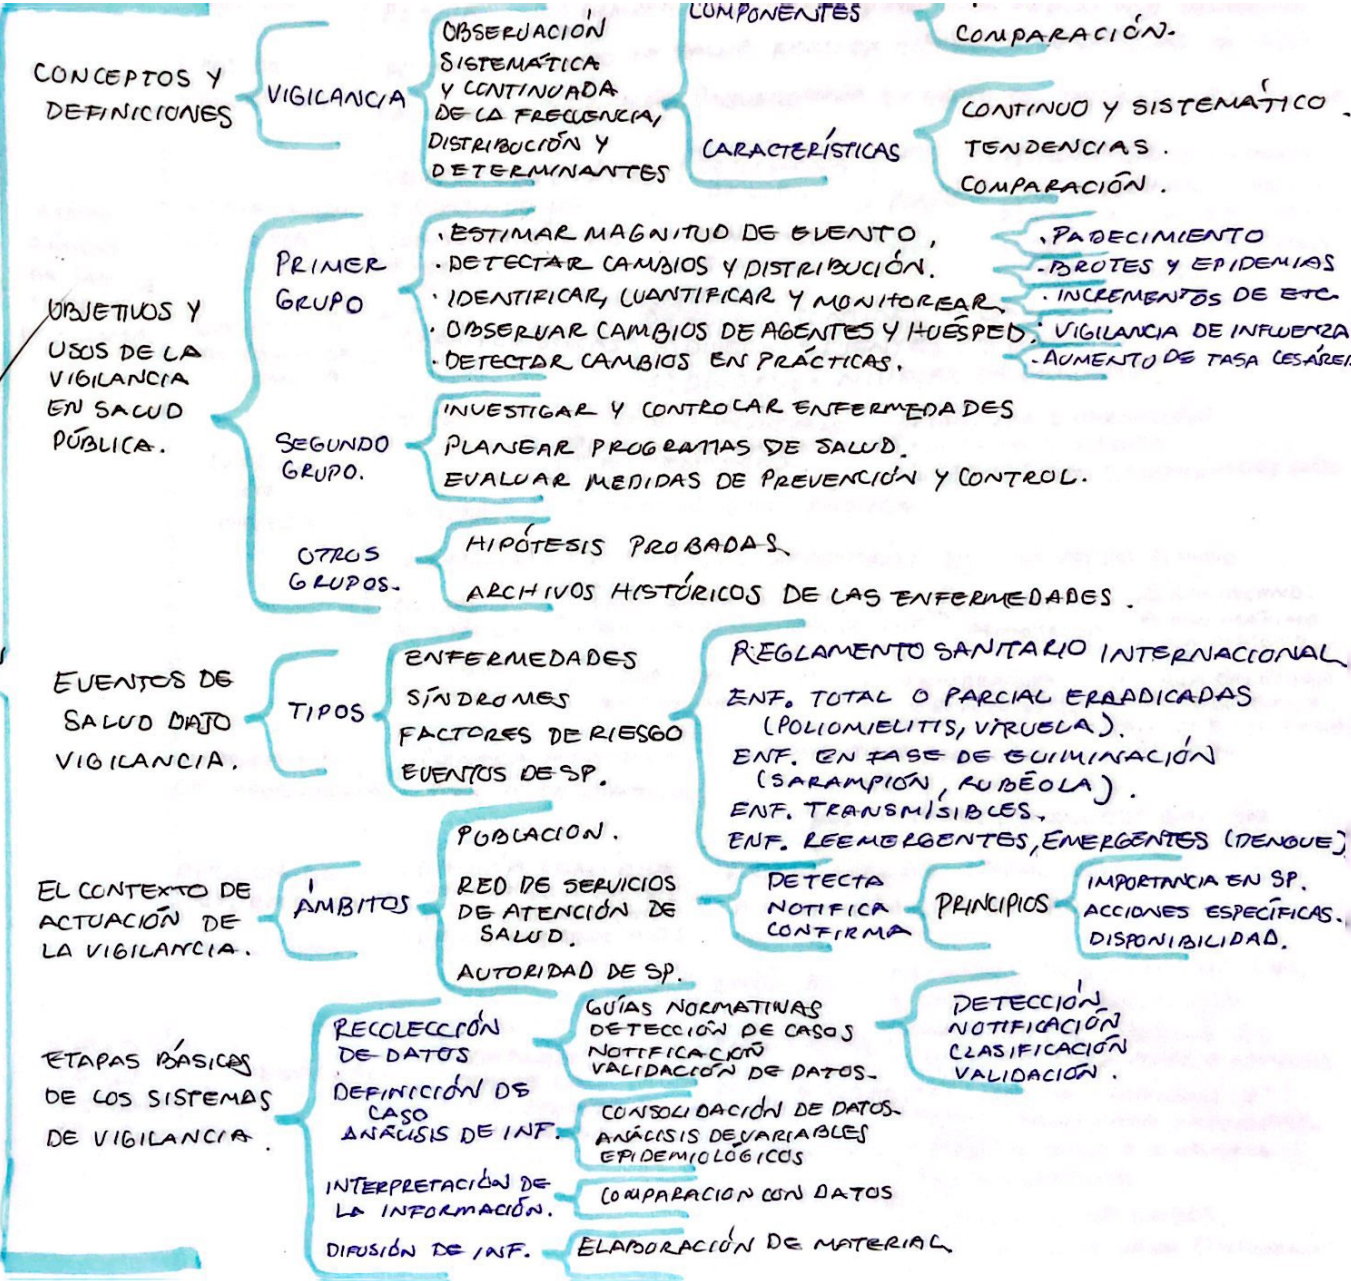 CONCEPTOS Y
DEFINICIONES
VIGILANCIA
OBSERVACIÓN
SISTEMÁTICA
Y CONTINUADA
DE LA FRECUENCIA,
DISTRIBUCIÓN Y
DETERMINANTES
COMPONENTES
COMPARACIÓN.
CARACTERÍSTICAS
CONTINUO Y SISTEMÁTICO.
TENDENCIAS.
COMPARACIÓN.
OBJETIVOS Y
USOS DE LA
VIGILANCIA
EN SALUD
PÚBLICA.
PRIMER
GRUPO
· ESTIMAR MAGNITUD DE EVENTO.
· DETECTAR CAMBIOS Y DISTRIBUCIÓN.
· IDENTIFICAR, CUANTIFICAR Y MONITOREAR
· OBSERVAR CAMBIOS DE AGENTES Y HUÉSPED.
· DETECTAR CAMBIOS EN PRÁCTICAS.
· PADECIMIENTO
· BROTES Y EPIDEMIAS
· INCREMENTOS DE ETC.
· VIGILANCIA DE INFLUENZA
· AUMENTO DE TASA CESÁREA
SEGUNDO
GRUPO.
INVESTIGAR Y CONTROLAR ENFERMEDADES
PLANEAR PROGRAMAS DE SALUD.
EVALUAR MEDIDAS DE PREVENCIÓN Y CONTROL.
OTROS
GRUPOS.
HIPÓTESIS PROBADAS
ARCHIVOS HISTÓRICOS DE LAS ENFERMEDADES.
EVENTOS DE
SALUD BAJO
VIGILANCIA.
TIPOS
ENFERMEDADES
SÍNDROMES
FACTORES DE RIESGO
EVENTOS DE SP.
REGLAMENTO SANITARIO INTERNACIONAL
ENF. TOTAL O PARCIAL ERRADICADAS
(POLIOMIELITIS, VIRUELA)
ENF. EN FASE DE ELIMINACIÓN
(SARAMPIÓN, RUBÉOLA).
ENF. TRANSMISIBLES.
ENF. REEMERGENTES, EMERGENTES (DENGUE)
EL CONTEXTO DE
ACTUACIÓN DE
LA VIGILANCIA.
ÁMBITOS
POBLACION.
RED DE SERVICIOS
DE ATENCIÓN DE
SALUD.
AUTORIDAD DE SP.
DETECTA
NOTIFICA
CONFIRMA
PRINCIPIOS
IMPORTANCIA EN SP.
ACCIONES ESPECÍFICAS.
DISPONIBILIDAD.
ETAPAS BÁSICAS
DE LOS SISTEMAS
DE VIGILANCIA
RECOLECCIÓN
DE DATOS
GUÍAS NORMATIVAS
DETECCIÓN DE CASOS
NOTIFICACIÓN
VALIDACIÓN DE DATOS.
DETECCIÓN
NOTIFICACIÓN
CLASIFICACIÓN
VALIDACIÓN.
DEFINICIÓN DE
CASO
ANÁLISIS DE INF.
CONSOLIDACIÓN DE DATOS.
ANÁLISIS DE VARIABLES
EPIDEMIOLÓGICOS
INTERPRETACIÓN DE
LA INFORMACIÓN.
COMPARACION CON DATOS
DIFUSIÓN DE INF.
ELABORACIÓN DE MATERIAL